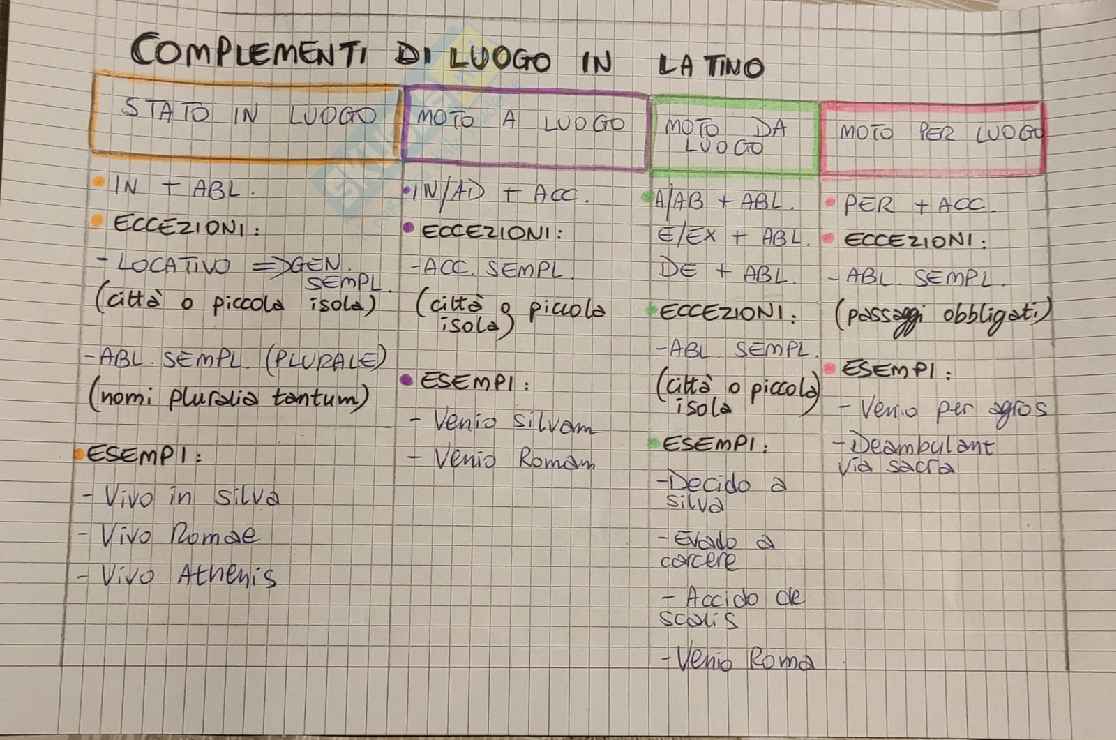 COMPLEMENTI DI LUOGO IN LATINO
STATO IN LUOGO
• IN + ABL.
• ECCEZIONI:
- LOCATIVO => GEN.
SEMPL.
(città o piccola isola)
- ABL. SEMPL. (PLURALE)
(nomi pluralia tantum)
• ESEMPI:
- Vivo in silva
- Vivo Romae
- Vivo Athenis
MOTO A LUOGO
• IN/AD + ACC.
• ECCEZIONI:
- ACC. SEMPL.
(città o piccola
isola)
• ESEMPI:
- Venio silvam
- Venio Romam
MOTO DA
LUOGO
• A/AB + ABL.
E/EX + ABL.
DE + ABL.
• ECCEZIONI:
- ABL. SEMPL.
(città o piccola
isola)
• ESEMPI:
- Decido a
silva
- Evado a
carcere
- Accido de
scalis
- Venio Roma
MOTO PER LUOGO
• PER + ACC.
• ECCEZIONI:
- ABL. SEMPL.
(passaggi obbligati)
• ESEMPI:
- Venio per agros
- Deambulant
via sacra